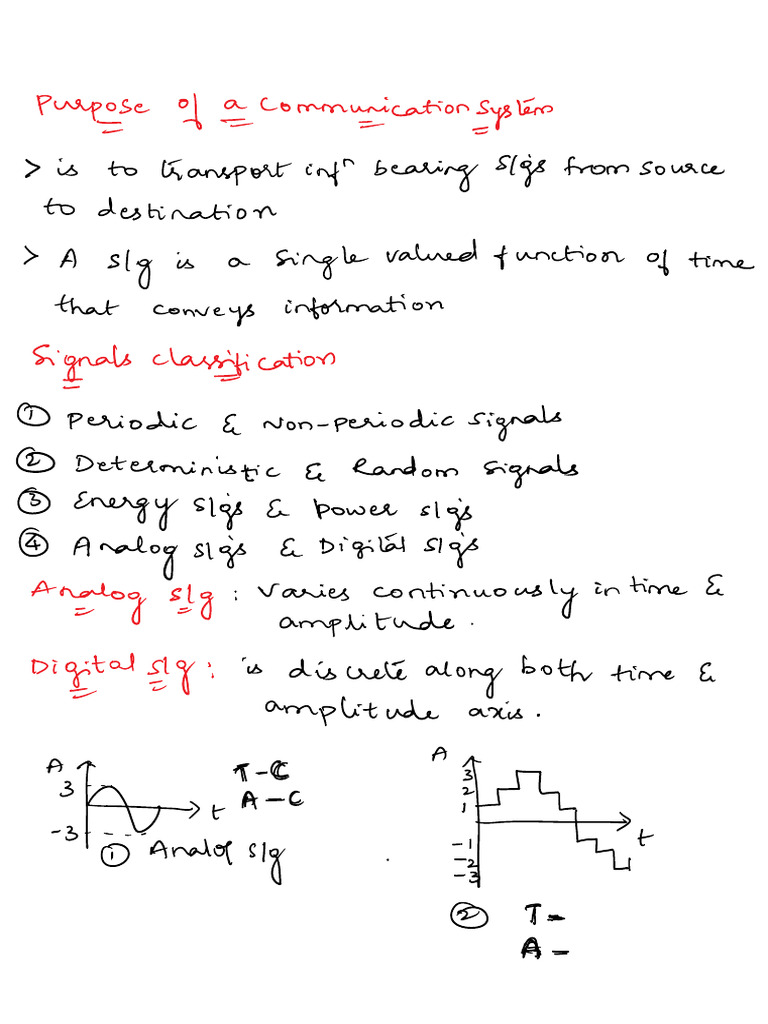 Purpose of a Communication System
> is to transport infⁿ bearing s/gs from source
to destination
> A s/g is a single valued function of time
that conveys information
Signals classification
① Periodic & Non-periodic signals
② Deterministic & Random signals
③ Energy s/gs & power s/gs
④ Analog s/gs & Digital s/gs
Analog s/g : varies continuously in time &
amplitude.
Digital s/g : is discrete along both time &
amplitude axis.
A
3
-3
t
T-C
A-C
① Analog s/g
A
3
2
1
-1
-2
-3
t
② T-
A-